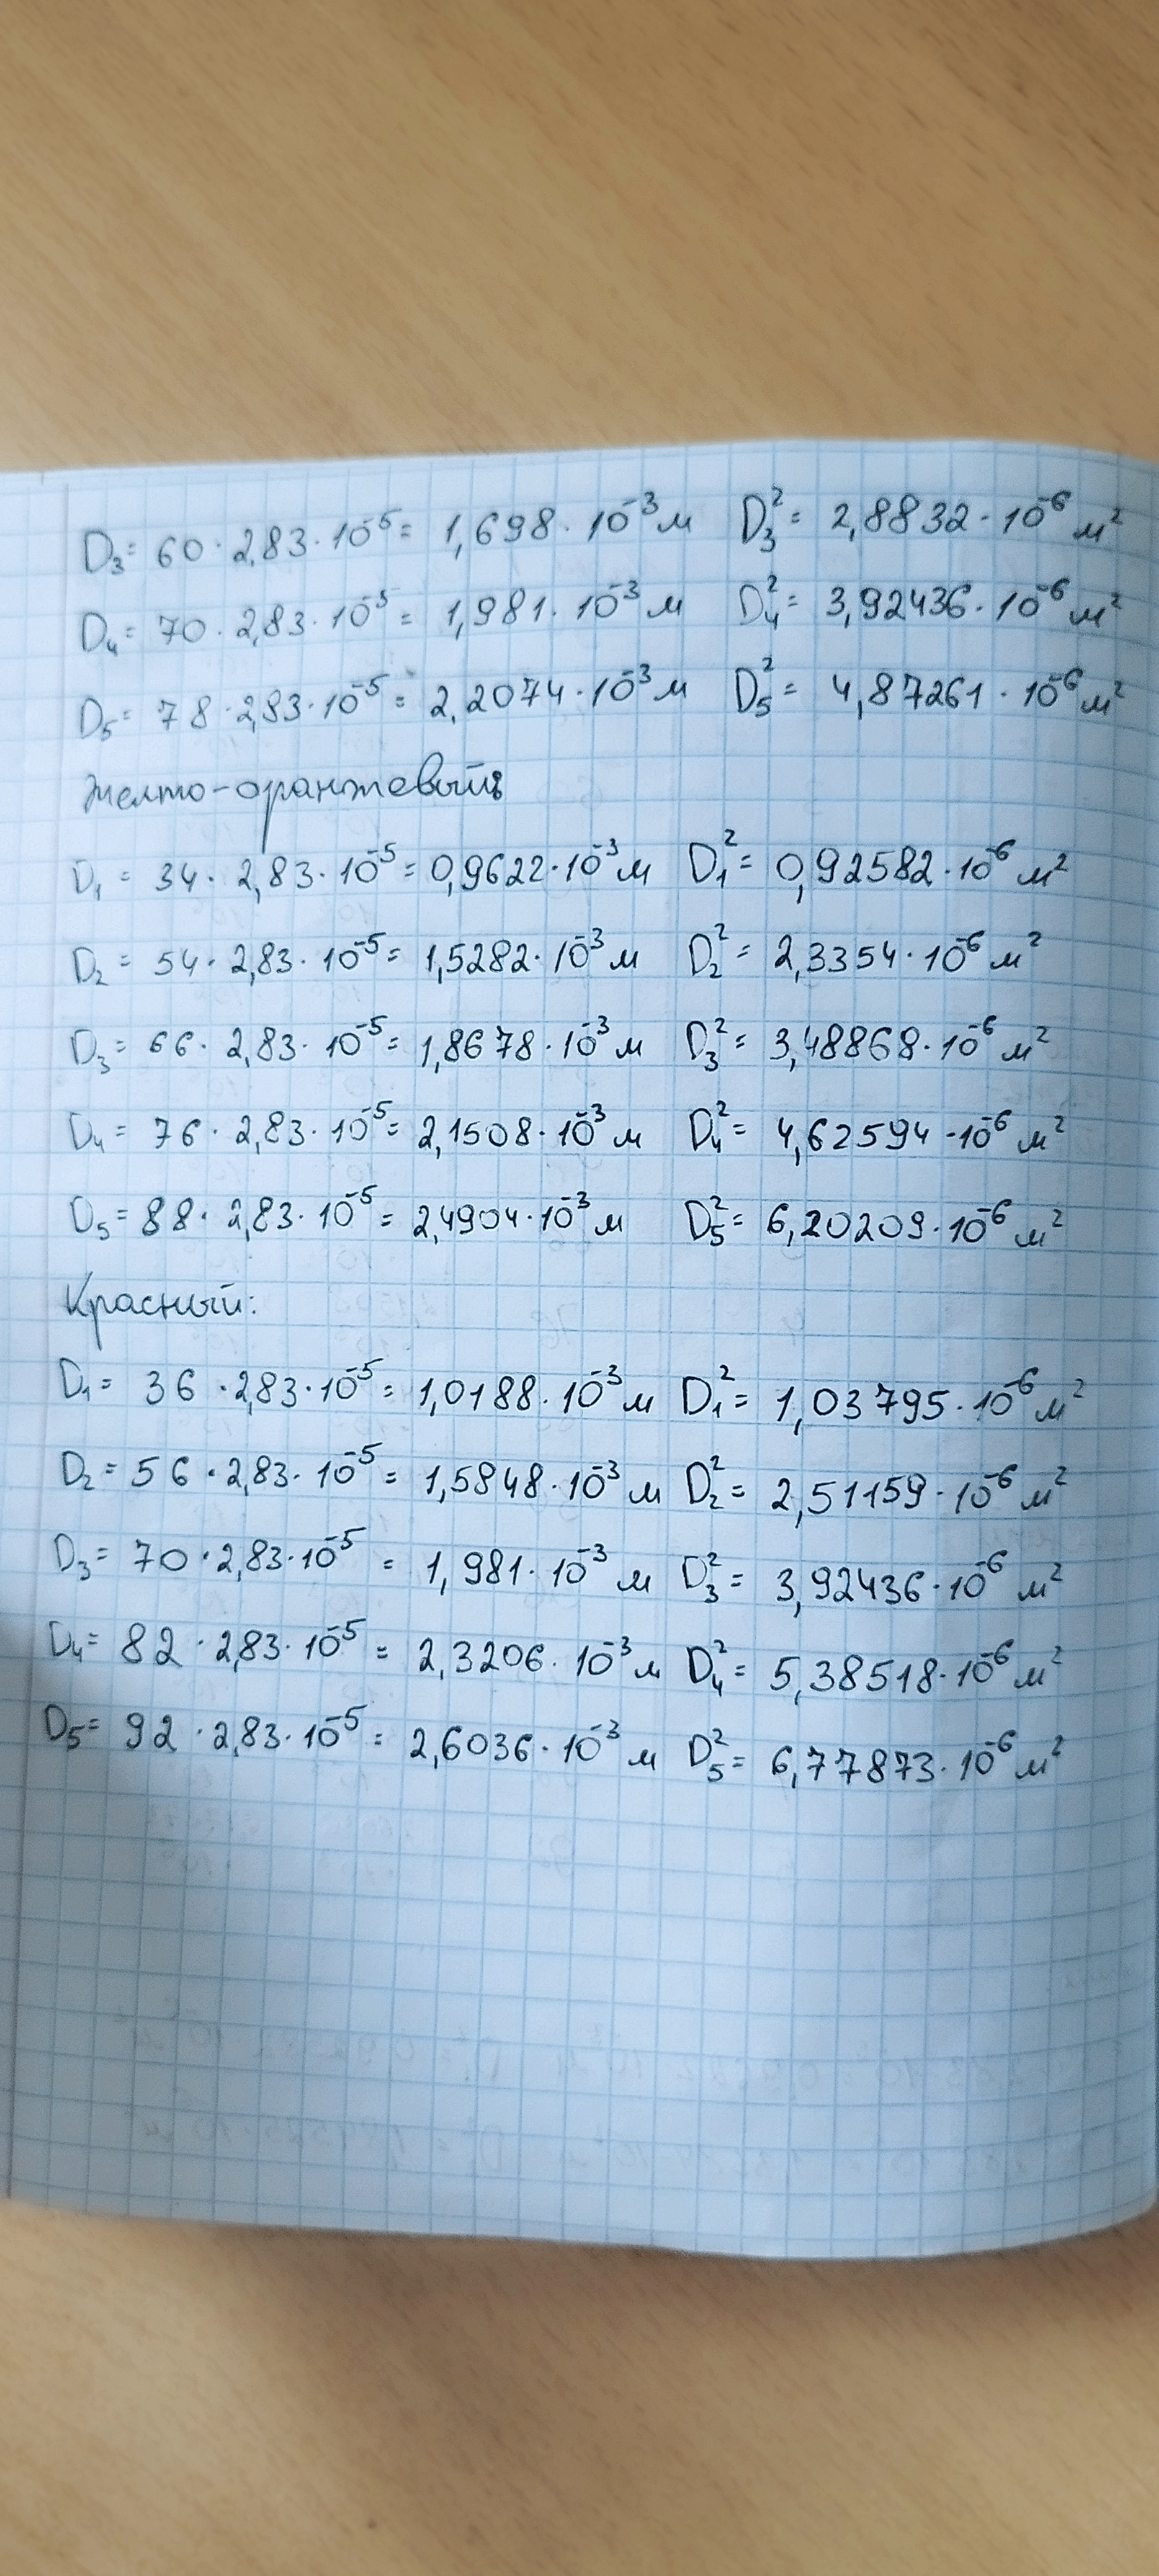 D₃ = 60 · 2,83 · 10⁻⁵ = 1,698 · 10⁻³ м D₃² = 2,8832 · 10⁻⁶ м²
D₄ = 70 · 2,83 · 10⁻⁵ = 1,981 · 10⁻³ м D₄² = 3,92436 · 10⁻⁶ м²
D₅ = 78 · 2,83 · 10⁻⁵ = 2,2074 · 10⁻³ м D₅² = 4,87261 · 10⁻⁶ м²
Желто-оранжевый:
D₁ = 34 · 2,83 · 10⁻⁵ = 0,9622 · 10⁻³ м D₁² = 0,92582 · 10⁻⁶ м²
D₂ = 54 · 2,83 · 10⁻⁵ = 1,5282 · 10⁻³ м D₂² = 2,3354 · 10⁻⁶ м²
D₃ = 66 · 2,83 · 10⁻⁵ = 1,8678 · 10⁻³ м D₃² = 3,48868 · 10⁻⁶ м²
D₄ = 76 · 2,83 · 10⁻⁵ = 2,1508 · 10⁻³ м D₄² = 4,62594 · 10⁻⁶ м²
D₅ = 88 · 2,83 · 10⁻⁵ = 2,4904 · 10⁻³ м D₅² = 6,20209 · 10⁻⁶ м²
Красный:
D₁ = 36 · 2,83 · 10⁻⁵ = 1,0188 · 10⁻³ м D₁² = 1,03795 · 10⁻⁶ м²
D₂ = 56 · 2,83 · 10⁻⁵ = 1,5848 · 10⁻³ м D₂² = 2,51159 · 10⁻⁶ м²
D₃ = 70 · 2,83 · 10⁻⁵ = 1,981 · 10⁻³ м D₃² = 3,92436 · 10⁻⁶ м²
D₄ = 82 · 2,83 · 10⁻⁵ = 2,3206 · 10⁻³ м D₄² = 5,38518 · 10⁻⁶ м²
D₅ = 92 · 2,83 · 10⁻⁵ = 2,6036 · 10⁻³ м D₅² = 6,77873 · 10⁻⁶ м²